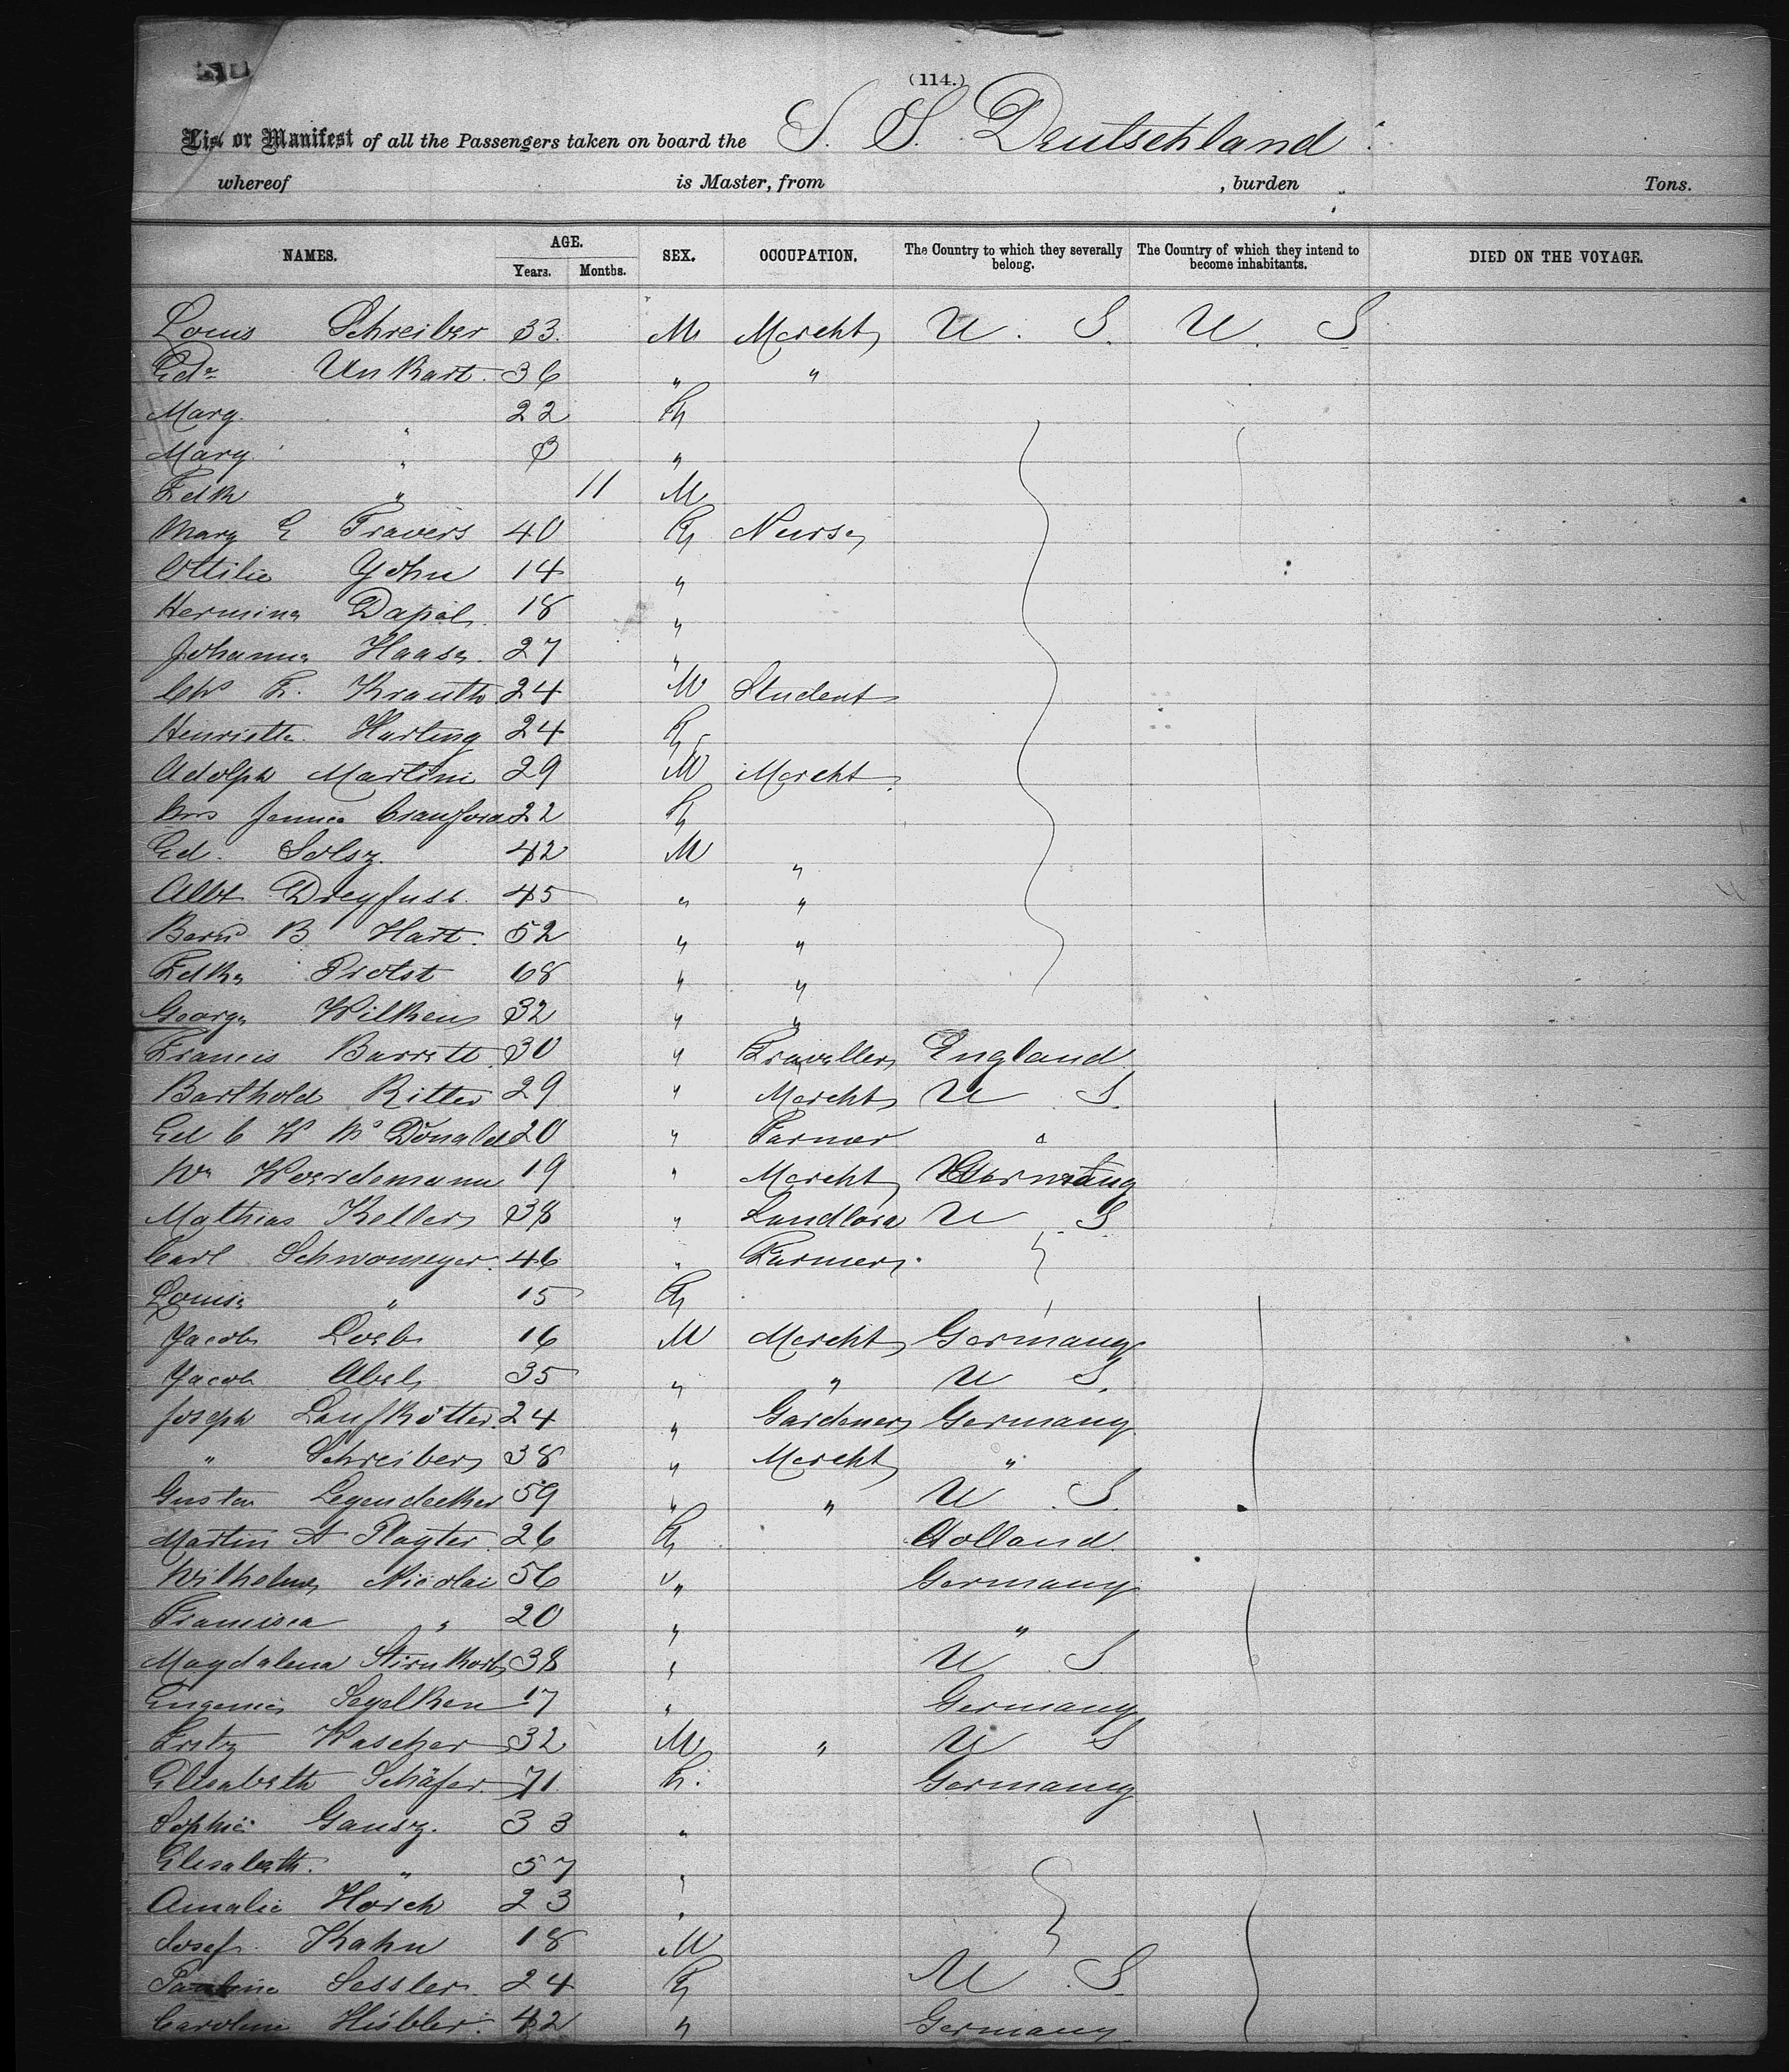 (114.)
List or Manifest of all the Passengers taken on board the S. S. Deutschland
whereof is Master, from , burden Tons.
NAMES. AGE. Years. Months. SEX. OCCUPATION. The Country to which they severally belong. The Country of which they intend to become inhabitants. DIED ON THE VOYAGE.
Louis Schreiber 33 M Mercht U. S. U. S
Edw Unkart 36 " "
Marg. " 22 F
Mary " 3 "
Fdk " 11 M
Mary E Travers 40 F Nurse
Ottilie John 14 "
Hermina 18 "
Johanna Haase 27 "
Chs F. Krauth 24 M Student
Henrietta Harting 24 F
Adolph Martini 29 M Mercht
Mrs Jennie Cranford 22 F
Ed. 42 M "
Albt Dreyfuss 45 " "
Bernd B Hart 52 " "
Fdk Probst 68 " "
George Wilkens 32 " "
Francis Barrett 30 " Traveller England
Barthold Ritter 29 " Mercht U S.
Ed C W McDonald 20 " Farmer "
Wm Woerdemann 19 " Mercht Germany
Mathias Keller 38 " Landlord U S
Carl Schwomeyer 46 " Farmer
Louise " 15 F
Jacob Loeb 16 M Mercht Germany
Jacob Abel 35 " " U S.
Joseph Laufkötter 24 " Gardener Germany
" Schreiber 38 " Mercht "
Gustav Legendecker 59 " " U. S.
Martin A Playter 26 F Holland
Wilhelm Nicolai 56 " Germany
Francisca " 20 " "
Magdalena Stirnkorb 38 " U. S
Eugenie Segelken 17 " Germany
Fritz Wascher 32 M " U S
Elisabeth Schäfer 71 F. Germany
Sophie Gansz. 33 "
Elisabeth " 57 "
Amalie Horch 23 "
Josef Kahn 18 M
Pauline Sessler 24 F U. S.
Caroline Hibbler 42 " Germany